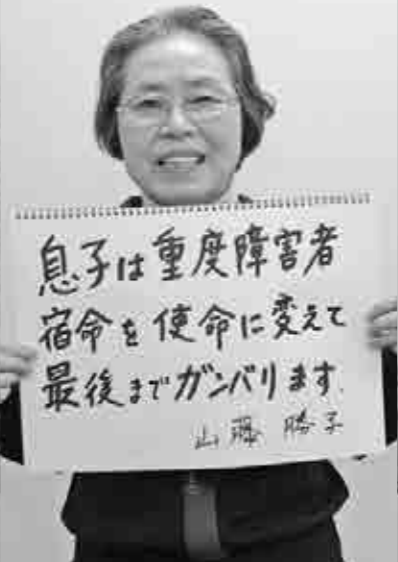 息子は重度障害者
宿命を使命に変えて
最後までガンバリます.
山藤 勝子